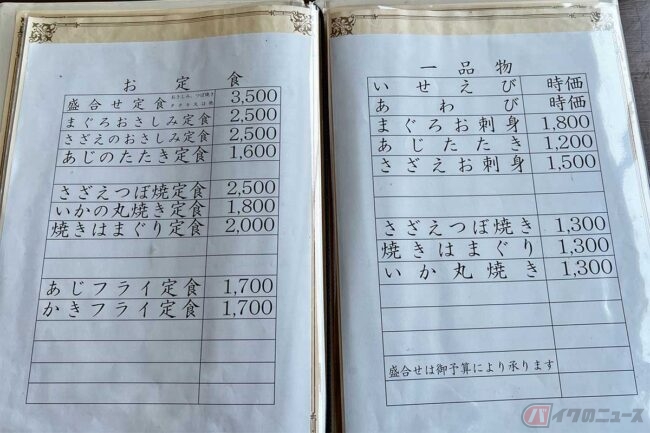 お定食
盛合せ定食 3,500
まぐろおさしみ定食 2,500
さざえのおさしみ定食 2,500
あじのたたき定食 1,600
さざえつぼ焼定食 2,500
いかの丸焼き定食 1,800
焼きはまぐり定食 2,000
あじフライ定食 1,700
かきフライ定食 1,700
一品物
いせえび 時価
あわび 時価
まぐろお刺身 1,800
あじたたき 1,200
さざえお刺身 1,500
さざえつぼ焼き 1,300
焼きはまぐり 1,300
いか丸焼き 1,300
盛合せは御予算により承ります
バイクのニュース